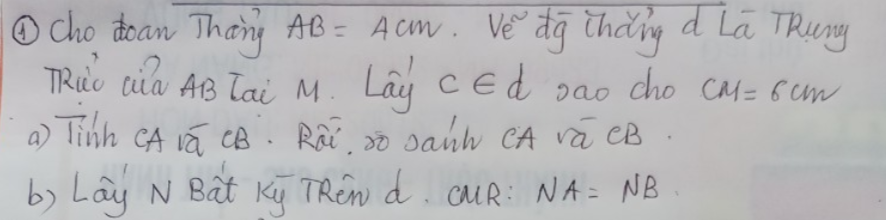 ① Cho đoan Thẳng AB = 4cm. Vẽ đg thẳng d Là TRung
TRực của AB Tại M. Lấy C ∈ d sao cho CM = 6cm
a) Tính CA và CB. Rồi so sánh CA và CB.
b) Lấy N Bất Kỳ TRên d. CMR: NA = NB.